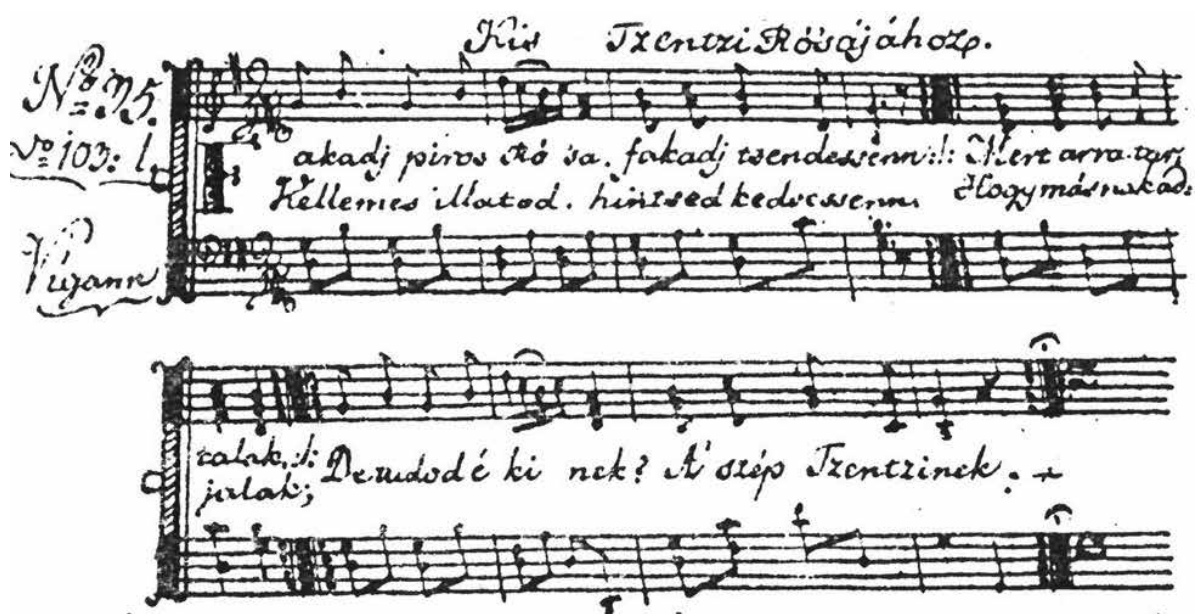 Kis Tzentzi Rósájához.
No 35.
No 103: l.
Fakadj piros Ró sa. fakadj tsendessénn :!: Mert arra tar,
Kellemes illatod. hintsed kedvessenn. Hogy másnak ád:
Vígann
talak, :!: De tudod é ki nek? A' szép Tzentzinek.
jalak;